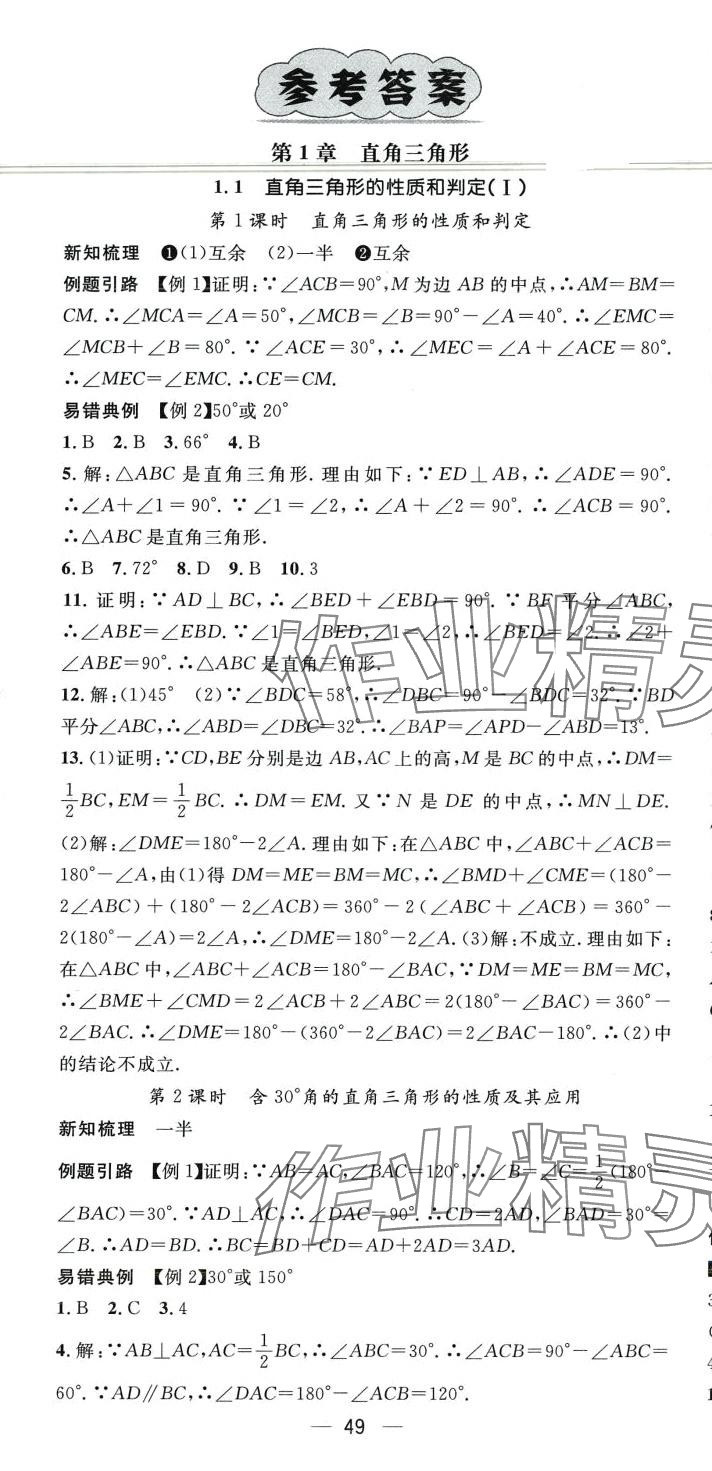 参考答案
第1章 直角三角形
1.1 直角三角形的性质和判定(Ⅰ)
第1课时 直角三角形的性质和判定
新知梳理 ❶(1)互余 (2)一半 ❷互余
例题引路 【例1】证明:∵∠ACB=90°,M为边AB的中点,∴AM=BM=
CM.∴∠MCA=∠A=50°,∠MCB=∠B=90°-∠A=40°.∴∠EMC=
∠MCB+∠B=80°.∵∠ACE=30°,∴∠MEC=∠A+∠ACE=80°.
∴∠MEC=∠EMC.∴CE=CM.
易错典例 【例2】50°或20°
1.B 2.B 3.66° 4.B
5.解:△ABC是直角三角形.理由如下:∵ED⊥AB,∴∠ADE=90°.
∴∠A+∠1=90°.∵∠1=∠2,∴∠A+∠2=90°.∴∠ACB=90°.
∴△ABC是直角三角形.
6.B 7.72° 8.D 9.B 10.3
11.证明:∵AD⊥BC,∴∠BED+∠EBD=90°.∵BE平分∠ABC,
∴∠ABE=∠EBD.∵∠1=∠BED,∠1=∠2,∴∠BED=∠2.∴∠2+
∠ABE=90°.∴△ABC是直角三角形.
12.解:(1)45° (2)∵∠BDC=58°,∴∠DBC=90°-∠BDC=32°.∵BD
平分∠ABC,∴∠ABD=∠DBC=32°.∴∠BAP=∠APD-∠ABD=13°.
13.(1)证明:∵CD,BE分别是边AB,AC上的高,M是BC的中点,∴DM=
1/2BC,EM=1/2BC.∴DM=EM.又∵N是DE的中点,∴MN⊥DE.
(2)解:∠DME=180°-2∠A.理由如下:在△ABC中,∠ABC+∠ACB=
180°-∠A,由(1)得DM=ME=BM=MC,∴∠BMD+∠CME=(180°-
2∠ABC)+(180°-2∠ACB)=360°-2(∠ABC+∠ACB)=360°-
2(180°-∠A)=2∠A,∴∠DME=180°-2∠A.(3)解:不成立.理由如下:
在△ABC中,∠ABC+∠ACB=180°-∠BAC,∵DM=ME=BM=MC,
∴∠BME+∠CMD=2∠ACB+2∠ABC=2(180°-∠BAC)=360°-
2∠BAC.∴∠DME=180°-(360°-2∠BAC)=2∠BAC-180°.∴(2)中
的结论不成立.
第2课时 含30°角的直角三角形的性质及其应用
新知梳理 一半
例题引路 【例1】证明:∵AB=AC,∠BAC=120°,∴∠B=∠C=1/2(180°-
∠BAC)=30°.∵AD⊥AC,∴∠DAC=90°.∴CD=2AD,∠BAD=30°=
∠B.∴AD=BD.∴BC=BD+CD=AD+2AD=3AD.
易错典例 【例2】30°或150°
1.B 2.C 3.4
4.解:∵AB⊥AC,AC=1/2BC,∴∠ABC=30°.∴∠ACB=90°-∠ABC=
60°.∵AD∥BC,∴∠DAC=180°-∠ACB=120°.
— 49 —
作业精灵
作业精灵